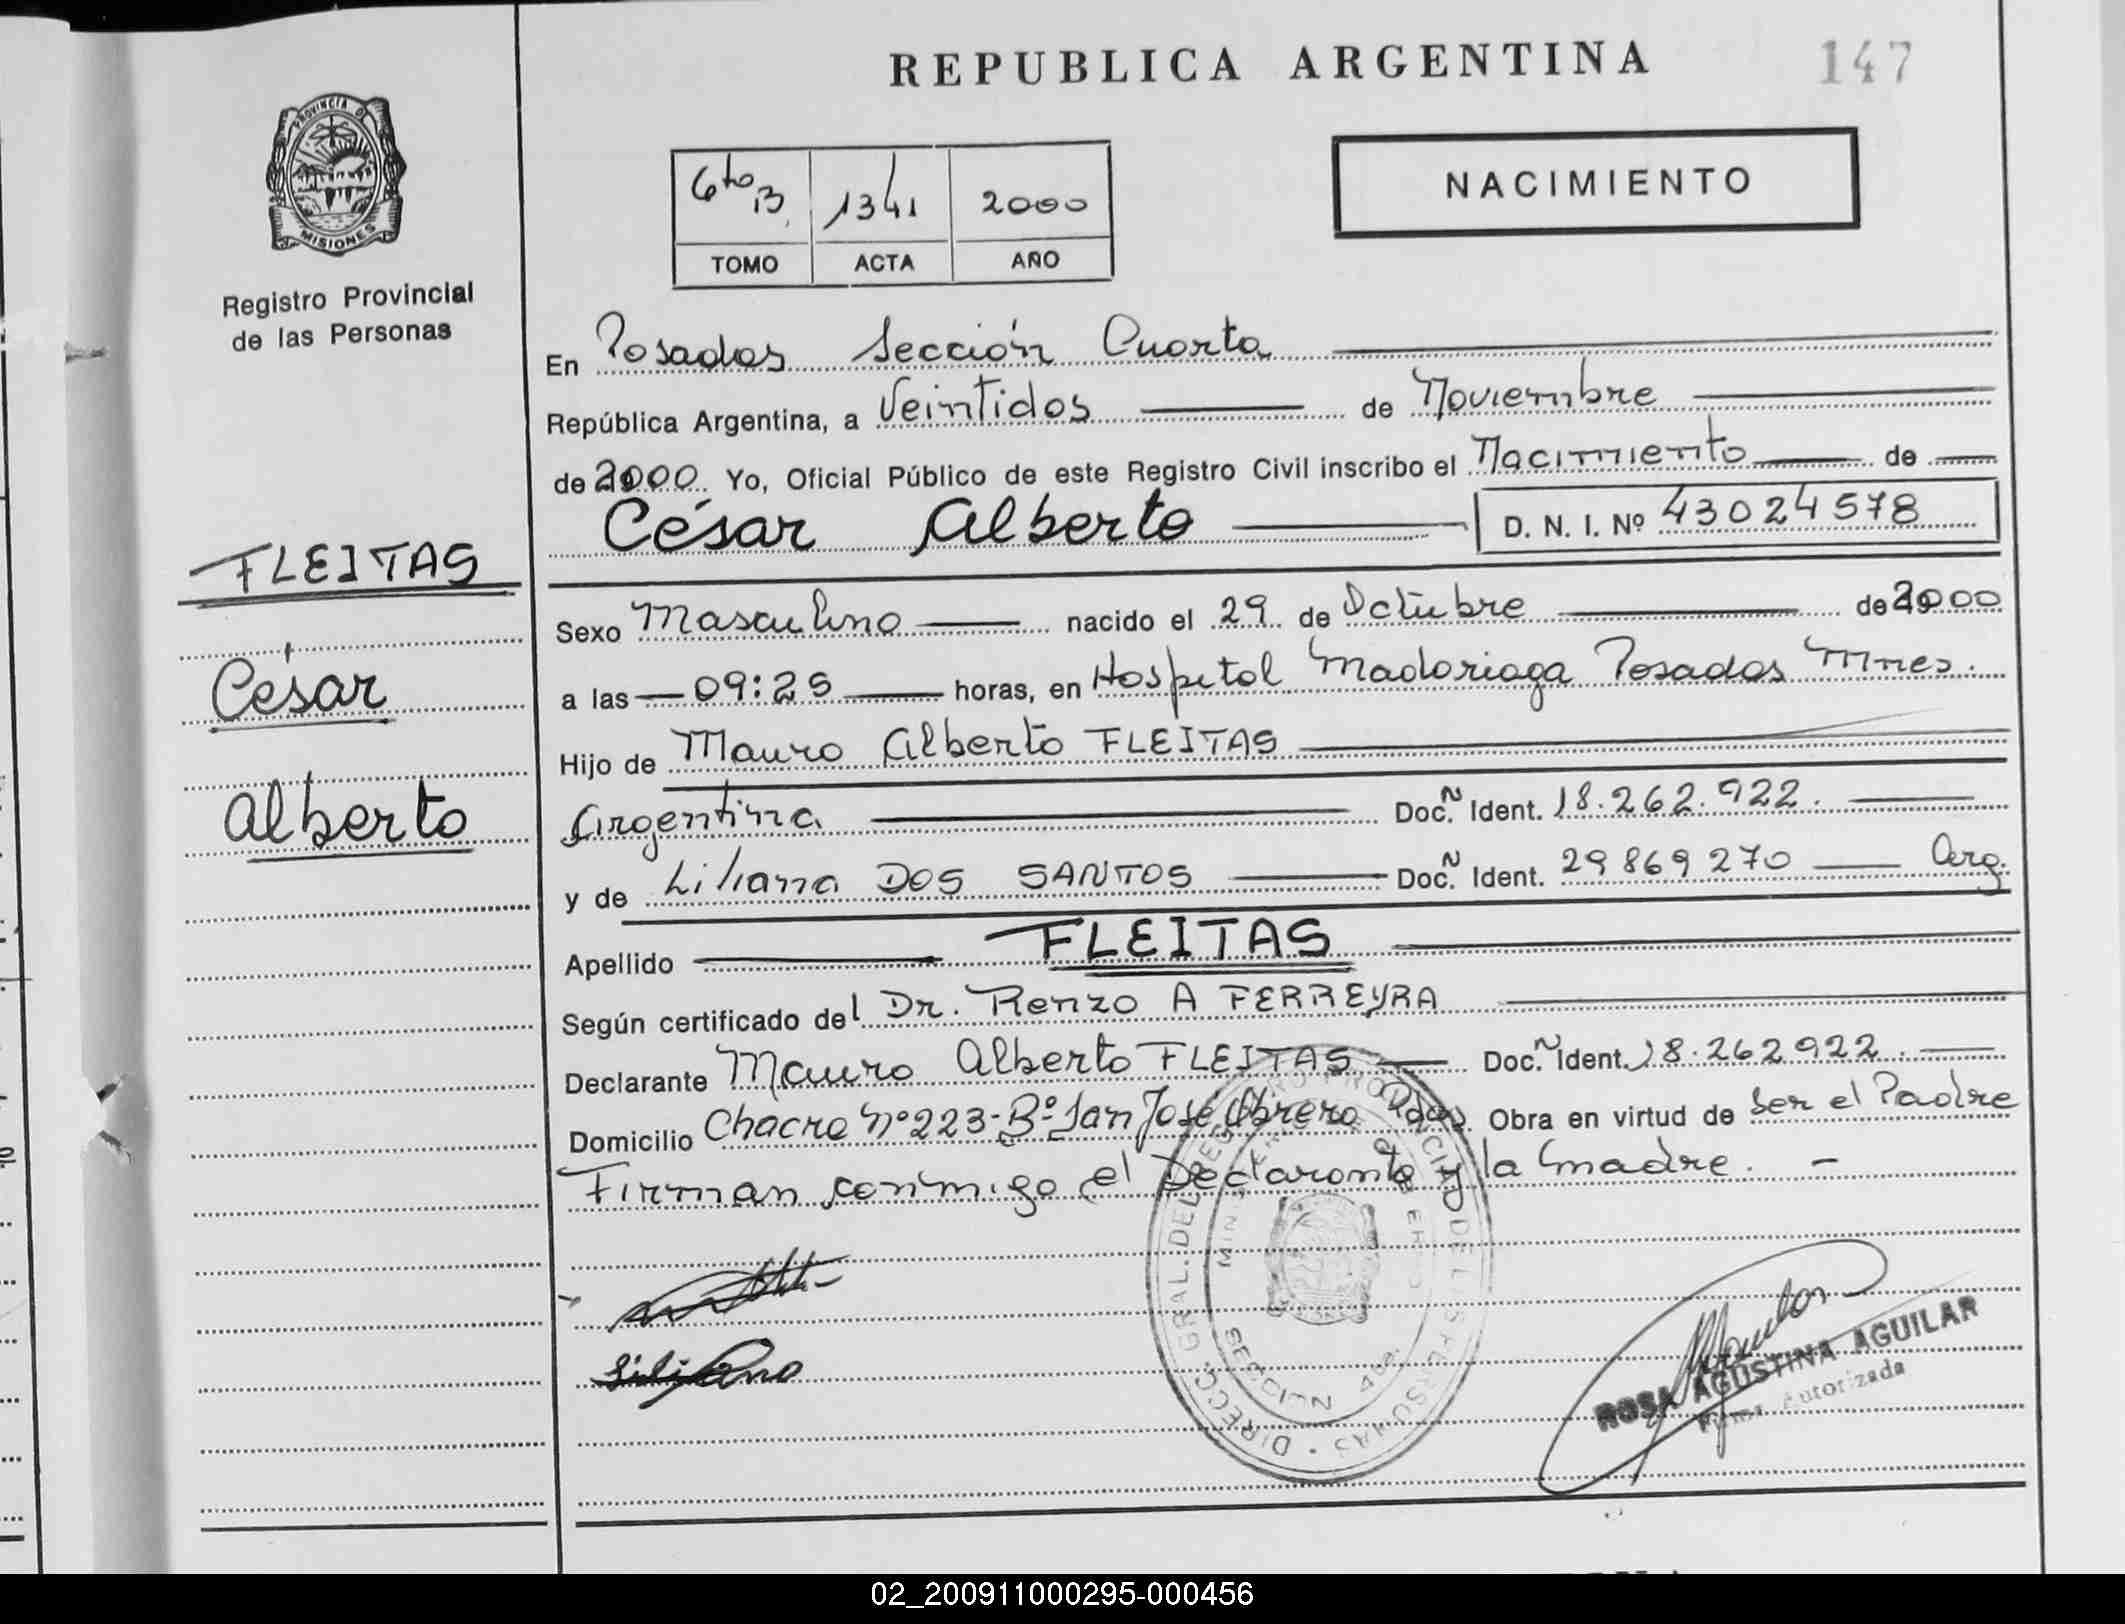 REPUBLICA ARGENTINA
147
PROVINCIA DE
MISIONES
Registro Provincial
de las Personas
6to B 1341 2000
TOMO ACTA AÑO
NACIMIENTO
En Posadas Sección Cuarta
República Argentina, a Veintidos de Noviembre
de 2000 Yo, Oficial Público de este Registro Civil inscribo el Nacimiento de
César Alberto D. N. I. Nº 43024578
FLEITAS
César
Alberto
Sexo Masculino nacido el 29 de Octubre de 2000
a las 09:25 horas, en Hospital Madariaga Posadas Mnes.
Hijo de Mauro Alberto FLEITAS
Argentina Doc. N Ident. 18.262.922.
y de Liliana DOS SANTOS Doc. N Ident. 29869270 Arg.
Apellido FLEITAS
Según certificado del Dr. Renzo A FERREYRA
Declarante Mauro Alberto FLEITAS Doc. N Ident. 18.262922.
Domicilio Chacra Nº 223-Bº San José Obrero Pdas. Obra en virtud de Ser el Padre
Firman conmigo el Declarante y la madre. -
Liliana
DIRECC. GRAL. DEL REGISTRO PROVINCIAL DE LAS PERSONAS
SECCION 4ta.
ROSA AGUSTINA AGUILAR
Firma Autorizada
02_200911000295-000456